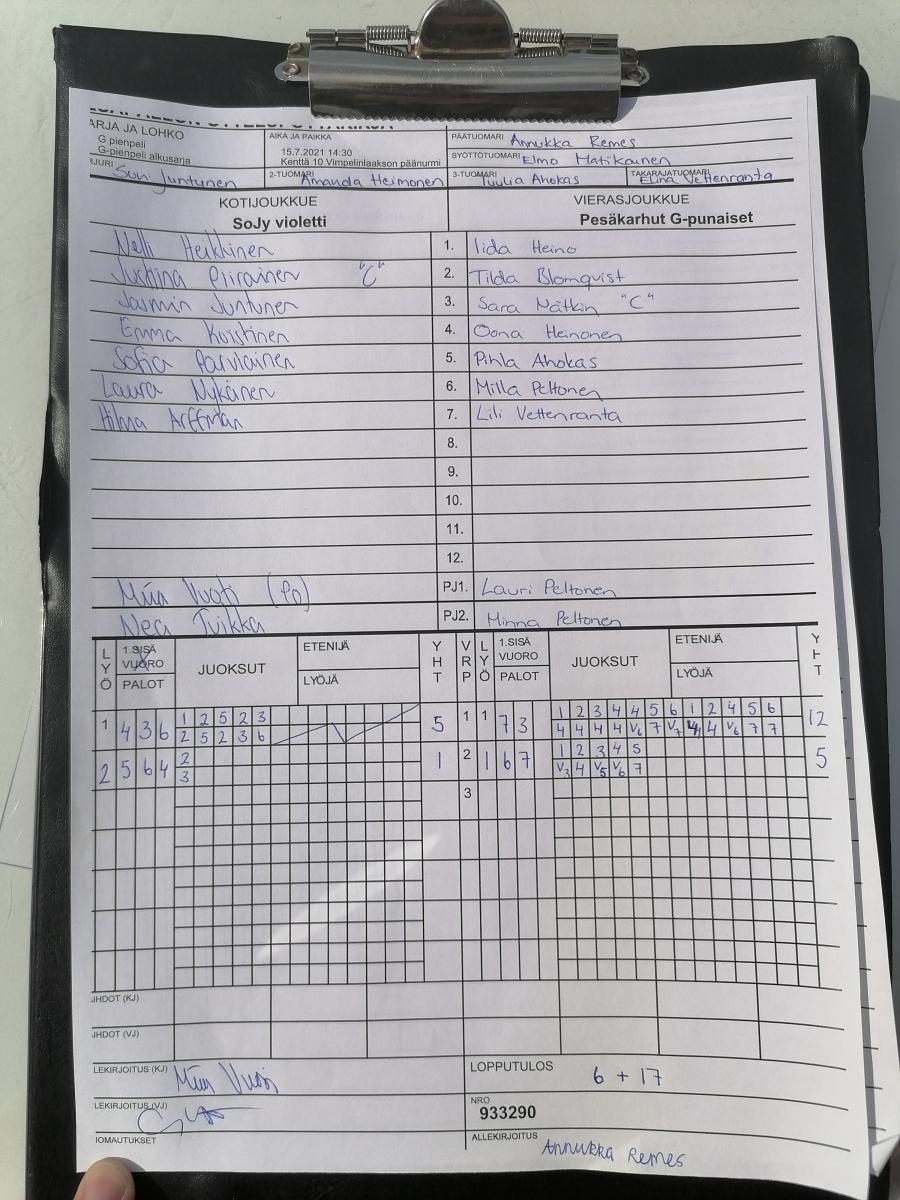 ARJA JA LOHKO
G pienpeli
G-pienpeli alkusarja
AIKA JA PAIKKA
15.7.2021 14:30
Kenttä 10 Vimpelinlaakson päänurmi
PÄÄTUOMARI Annukka Remes
SYÖTTÖTUOMARI Elmo Matikainen
RJURI Suvi Juntunen
2-TUOMARI Amanda Heimonen
3-TUOMARI Tuulia Ahokas
TAKARAJATUOMARI Elina Vettenranta
KOTIJOUKKUE
SoJy violetti
VIERASJOUKKUE
Pesäkarhut G-punaiset
Nelli Heikkinen 1. Iida Heino
Piirainen "C" 2. Tilda Blomqvist
Jasmin Juntunen 3. Sara Mätkin "C"
Emma Koistinen 4. Oona Heinonen
Sofia Parviainen 5. Pihla Ahokas
Laura Nykänen 6. Milla Peltonen
Hilma Arffman 7. Lili Vettenranta
8.
9.
10.
11.
12.
Miia PJ1. Lauri Peltonen
Nea Tuikka PJ2. Minna Peltonen
LYÖ 1.SISÄ VUORO PALOT JUOKSUT ETENIJÄ LYÖJÄ YHT VRP LYÖ 1.SISÄ VUORO PALOT JUOKSUT ETENIJÄ LYÖJÄ YHT
1 4 3 6 1 2 5 2 3 5 1 1 7 3 1 2 3 4 4 5 6 1 2 4 5 6 12
2 5 2 3 6 4 4 4 4 V6 7 V7 4 4 V6 7 7
2 5 6 4 2 1 2 1 6 7 1 2 3 4 5 5
3 V3 4 V5 V6 7
3
IHDOT (KJ)
IHDOT (VJ)
LEKIRJOITUS (KJ) Miia
LOPPUTULOS 6 + 17
LEKIRJOITUS (VJ)
NRO
933290
IOMAUTUKSET
ALLEKIRJOITUS Annukka Remes